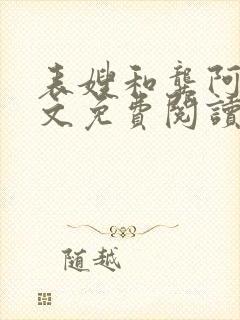 表嫂和龔阿
文免費閱讀
随越